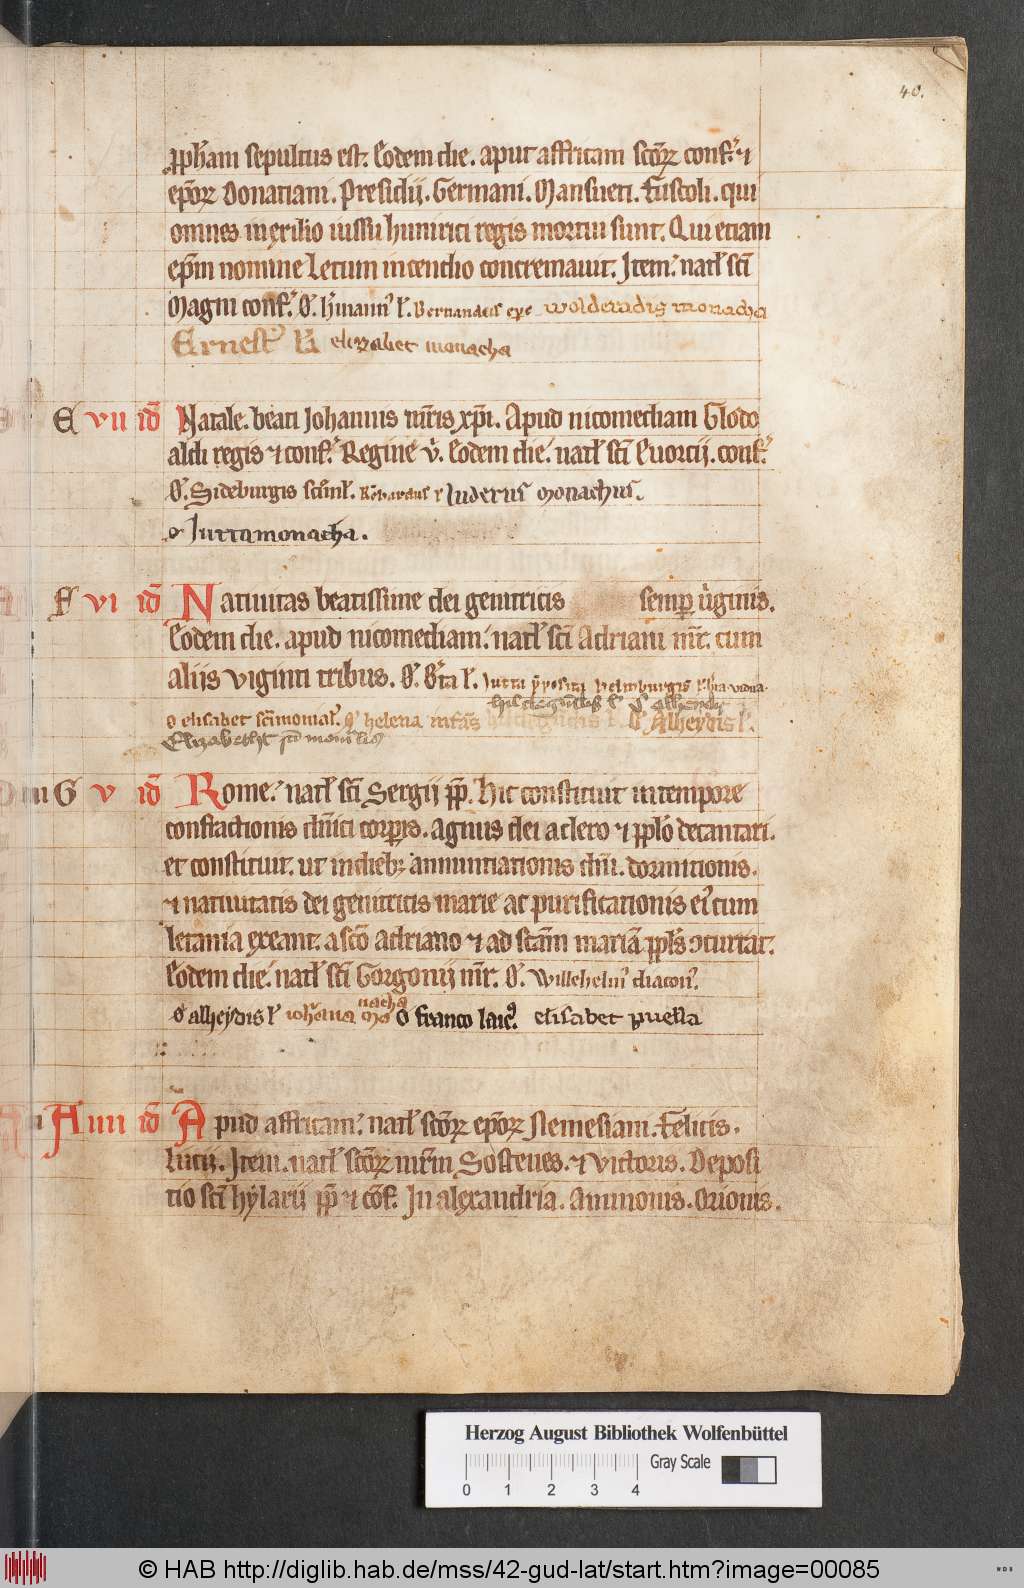 40.
ꝓph̄am sepultus est. Eodem die. aput affricam sc̄oꝝ conf. ⁊
ep̄oꝝ Donatiani. Presidij. Germani. Mansueti. Fuscoli. qui
omnes in exilio iussu hunirici regis mortui sunt. Qui etiam
ep̄m nomine Letum incendio concremauit. Item. natl̓ sc̄i
Magni conf. O. h̓manni l̓. Bernardus woldradis monacha
Ernest elizabet monacha
E vii id̄ Natale. beati Johannis mr̄is xp̄i. Apud nicomediam Glodo
aldi regis ⁊ conf. Regine v̓. Eodem die. natl̓ sc̄i Euortij. conf.
O. Sideburgis Luderus monachus.
o Jutta monacha.
F vi id̄ Natiuitas beatissime dei genitricis semꝑ uirginis.
Eodem die. apud nicomediam. natl̓ sc̄i Adriani mr̄. cum
aliis viginti tribus. O. l̓. Jutta helmburgis
alheydis
o elisabet helena infans Alheydis l̓.
Elizabeth
G v id̄ Rome. natl̓ sc̄i Sergij pp̄. Hic constituit ut in tempore
confractionis dn̄ici corꝑis. Agnus dei a clero ⁊ ppl̓o decantari.
et constituit. ut in dieb; annuntiationis dn̄i. dormitionis.
⁊ natiuitatis dei genitricis marie ac purificationis ei᾿ cum
letania exeant a sc̄o Adriano ⁊ ad sc̄am mariā ppl̓s ɔcurrat.
Eodem die. natl̓ sc̄i Gorgonij mr̄. O. Willehelm᾿ diacon᾿.
O alheydis l̓ ioh̄ana monacha O franco laic᾿. elisabet puella
A iiii id̄ Apud affricam. natl̓ sc̄oꝝ ep̄oꝝ Nemesiani. Felicis.
Lucij. Item. natl̓ sc̄oꝝ mr̄m Sostenes. ⁊ Victoris. Deposi
tio sc̄i hylarij pp̄ ⁊ cōf. In alexandria. Ammonis. Orionis.
Herzog August Bibliothek Wolfenbüttel
Gray Scale
0 1 2 3 4
© HAB http://diglib.hab.de/mss/42-gud-lat/start.htm?image=00085